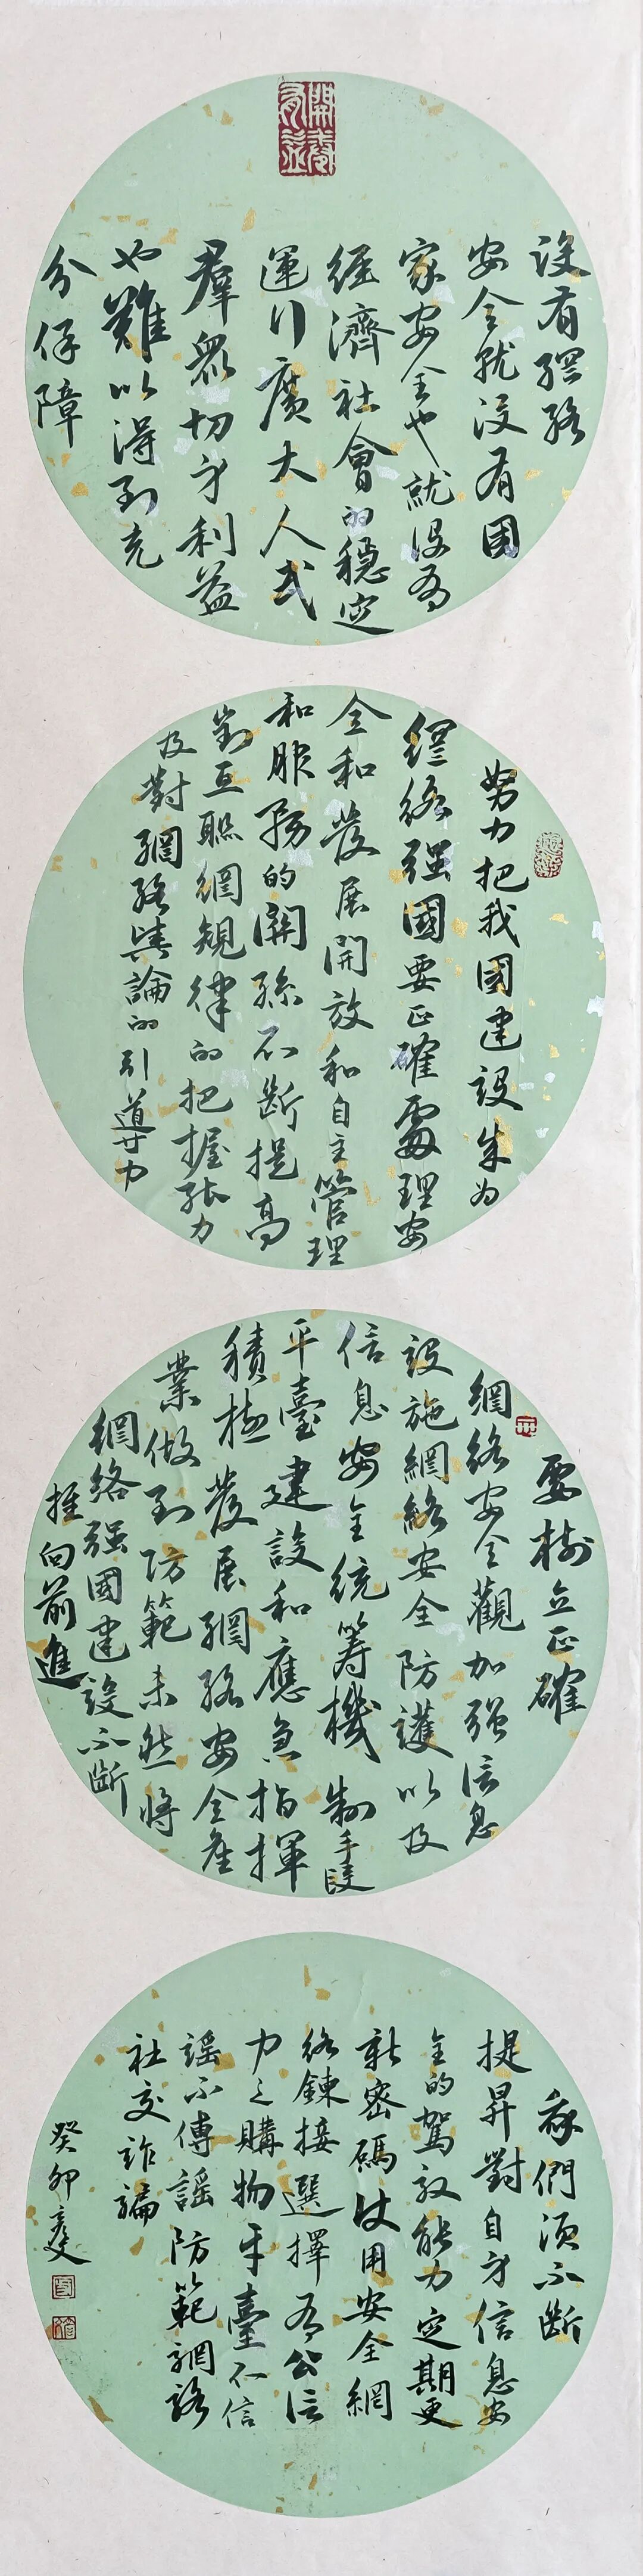 開卷有益
没有網絡
安全就没有國
家安全也就没有
經濟社會的穩定
運行廣大人民
羣衆切身利益
也難以得到充
分保障
努力把我國建設成爲
網絡强國要正確處理安
全和發展開放和自主管理
和服務的關系不斷提高
對互聯網規律的把握能力
及對網絡輿論的引導力
要樹立正確
網絡安全觀加强信息
設施網絡安全防護以及
信息安全統籌機制手段
平臺建設和應急指揮
積極發展網絡安全産
業做到防範未然將
網絡强國建設不斷
推向前進
我們須不斷
提昇對自身信息安
全的駕馭能力定期更
新密碼使用安全網
絡鍊接選擇有公信
力之購物平臺不信
謡不傳謡防範網絡
社交詐騙
癸卯